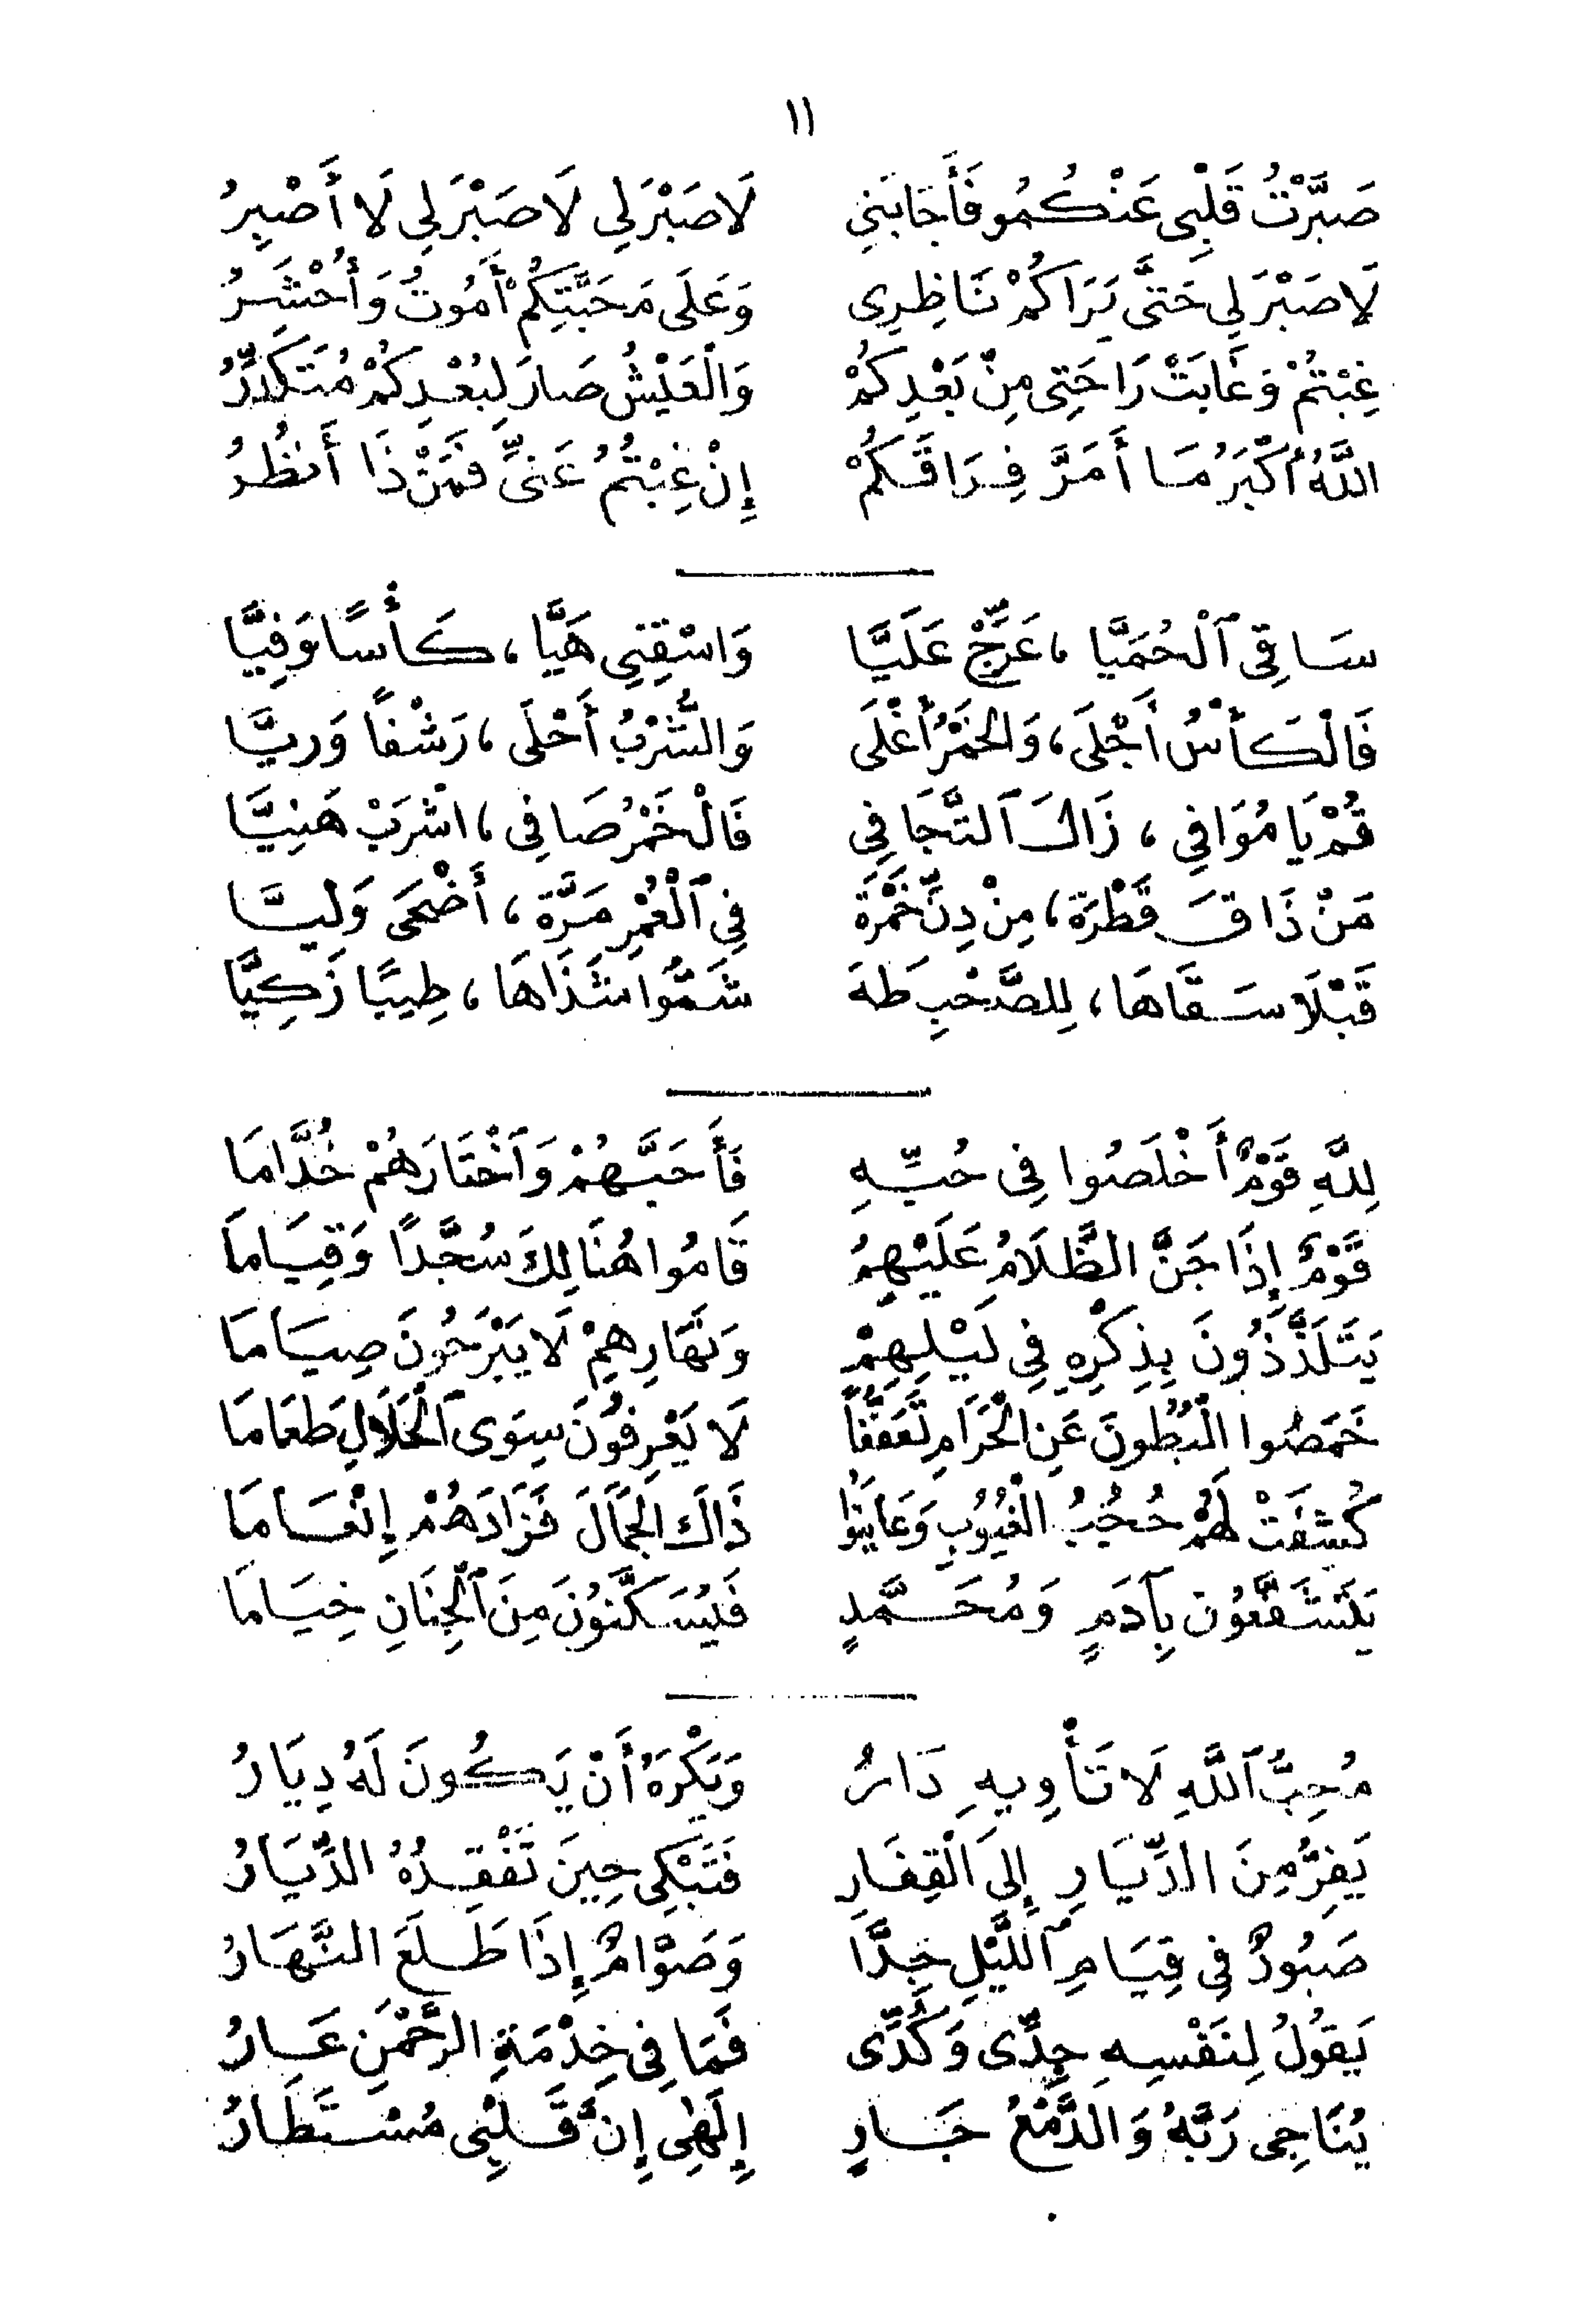 ١١
صَبَّرْتُ قَلْبِى عَنْكُمُو فَأَجَابَنِي لَا صَبْرَ لِي لَا صَبْرَ لِي لَا أَصْبِرُ
لَا صَبْرَ لِي حَتَّى يَرَاكُمْ نَاظِرِى وَعَلَى مَحَبَّتِكُمْ أَمُوتُ وَأُحْشَرُ
غِبْتُمْ وَغَابَتْ رَاحَتِى مِنْ بَعْدِكُمْ وَالْعَيْشُ صَارَ لِبُعْدِكُمْ مُتَكَدِّرُ
اللَّهُ أَكْبَرُ مَا أَمَرَّ فِرَاقَكُمْ إِنْ غِبْتُمُ عَنِّى فَمَنْ ذَا أَنظُرُ
سَاقِى ٱلْحُمَيَّا ، عَرِّجْ عَلَيَّا وَاسْقِنِي هَيَّا ، كَأْسًا وَفِيَّا
فَالْكَأْسُ أَجْلَى ، وَالخَمْرُ أَغْلَى وَالشُّرْبُ أَحْلَى ، رَشْفاً وَرِيَّا
قُمْ يَا مُوَافِي ، زَالَ ٱلتَّجَافِي فَالْخَمْرُ صَافِى ، اشْرَبْ هَنِيَّا
مَنْ ذَاقَ قَطْرَة ، مِنْ دِنِّ خَمْرَة فِي ٱلْعُمْرِ مَرَّة ، أَضْحَى وَلِيَّا
قَبْلَا سَقَاهَا ، لِلصَّحْبِ طَهَ شَمُّوا شَذَاهَا ، طِيبًا زَكِيَّا
لِلَّهِ قَوْمٌ أَخْلَصُوا فِى حُبِّهِ فَأَحَبَّهُمْ وَٱخْتَارَهُمْ خُدَّامَا
قَوْمٌ إِذَا جَنَّ الظَّلَامُ عَلَيْهِمُ قَامُوا هُنَالِكَ سُجَّدًا وَقِيَامَا
يَتَلَذَّذُونَ بِذِكْرِهِ فِي لَيْلِهِمْ وَنَهَارِهِمْ لَا يَبْرَحُونَ صِيَامَا
خَمَصُوا الْبُطُونَ عَنِ الْحَرَامِ تَعَفُّفاً لَا يَعْرِفُونَ سِوَى ٱلْحَلَالِ طَعَامَا
كُشِفَتْ لَهُمْ حُجُبُ الْغُيُوبِ وَعَايَنُوا ذَاكَ الجَمَالَ فَزَادَهُمْ إِنْعَامَا
يَتَشَفَّعُونَ بِآدَمٍ وَمُحَمَّدٍ فَيُسَكَّنُونَ مِنَ ٱلْجِنَانِ خِيَامَا
مُحِبُّ ٱللَّهِ لَا تَأْوِيهِ دَارُ وَيَكْرَهُ أَنْ يَكُونَ لَهُ دِيَارُ
يَفِرُّ مِنَ الدِّيَارِ إِلَى الْقِفَارِ فَتَبْكِى حِينَ تَفْقِدُهُ الدِّيَارُ
صَبُورٌ فِى قِيَامِ ٱللَّيْلِ جِدًّا وَصَوَّامٌ إِذَا طَلَعَ النَّهَارُ
يَقُولُ لِنَفْسِهِ جِدِّى وَكُدِّى فَمَا فِى خِدْمَةِ الرَّحْمَنِ عَارُ
يُنَاجِى رَبَّهُ وَالدَّمْعُ جَارٍ إِلَهِى إِنَّ قَلْبِى مُسْتَطَارُ